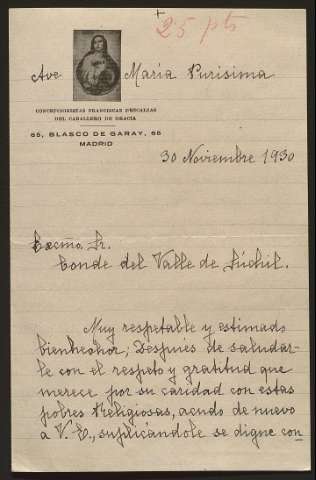 25 pts
Ave María Purísima
CONCEPCIONISTAS FRANCISCAS DESCALZAS
DEL CABALLERO DE GRACIA
65, BLASCO DE GARAY, 65
MADRID
30 Noviembre 1930
Excmo. Sr.
Conde del Valle de Súchil.
Muy respetable y estimado
bienhechor; Después de saludar-
le con el respeto y gratitud que
merece por su caridad con estas
pobres Religiosas, acudo de nuevo
a V. E., suplicándole se digne con